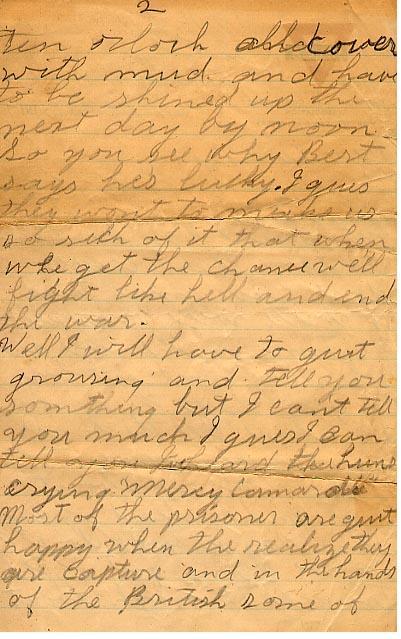 2
ten oclock all cover
with mud and have
to be shined up the
next day by noon
So you see why Bert
says hes lucky. I gues
they want to make us
so sick of it that when
whe get the chance well
fight like hell and end
the war.
Well I will have to quit
grousing and tell you
somthing but I cant tell
you much I gues I can
tell you I heard the huns
crying "Mercy Camarade"
Most of the prisoner are quit
happy when the realize they
are capture and in the hands
of the British some of